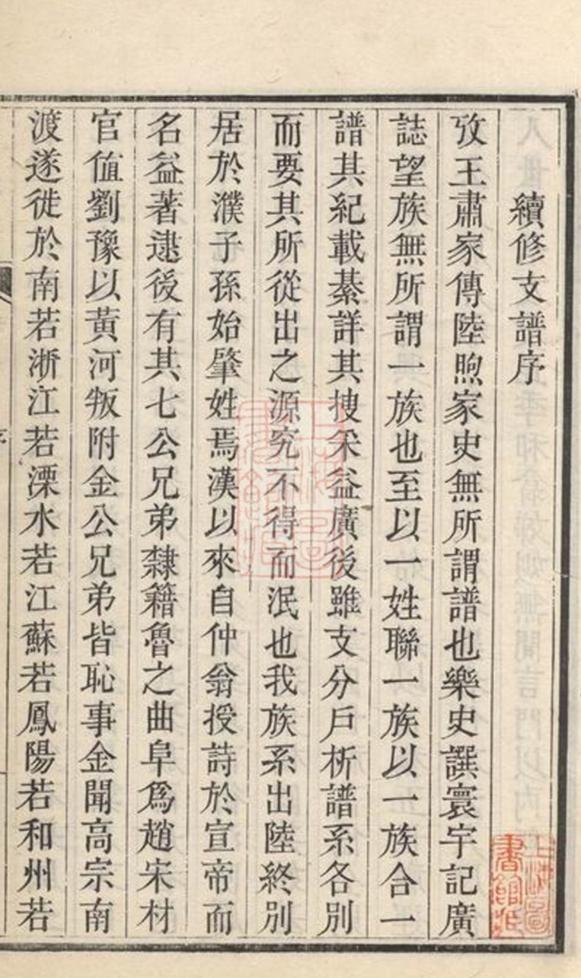 續修支譜序
攷王肅家傳陸煦家史無所謂譜也樂史譔寰宇記廣
誌望族無所謂一族也至以一姓聯一族以一族合一
譜其紀載綦詳其搜采益廣後雖支分戶析譜系各別
而要其所從出之源究不得而泯也我族系出陸終別
居於濮子孫始肇姓焉漢以來自仲翁授詩於宣帝而
名益著逮後有其七公兄弟隸籍魯之曲阜爲趙宋材
官值劉豫以黃河叛附金公兄弟皆恥事金聞高宗南
渡遂徙於南若浙江若溧水若江蘇若鳳陽若和州若
上海圖書館藏